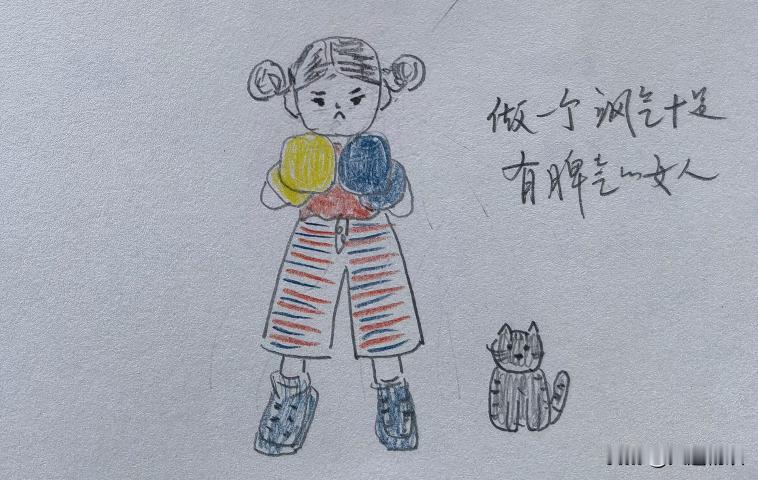 做一个飒气十足
有脾气的女人